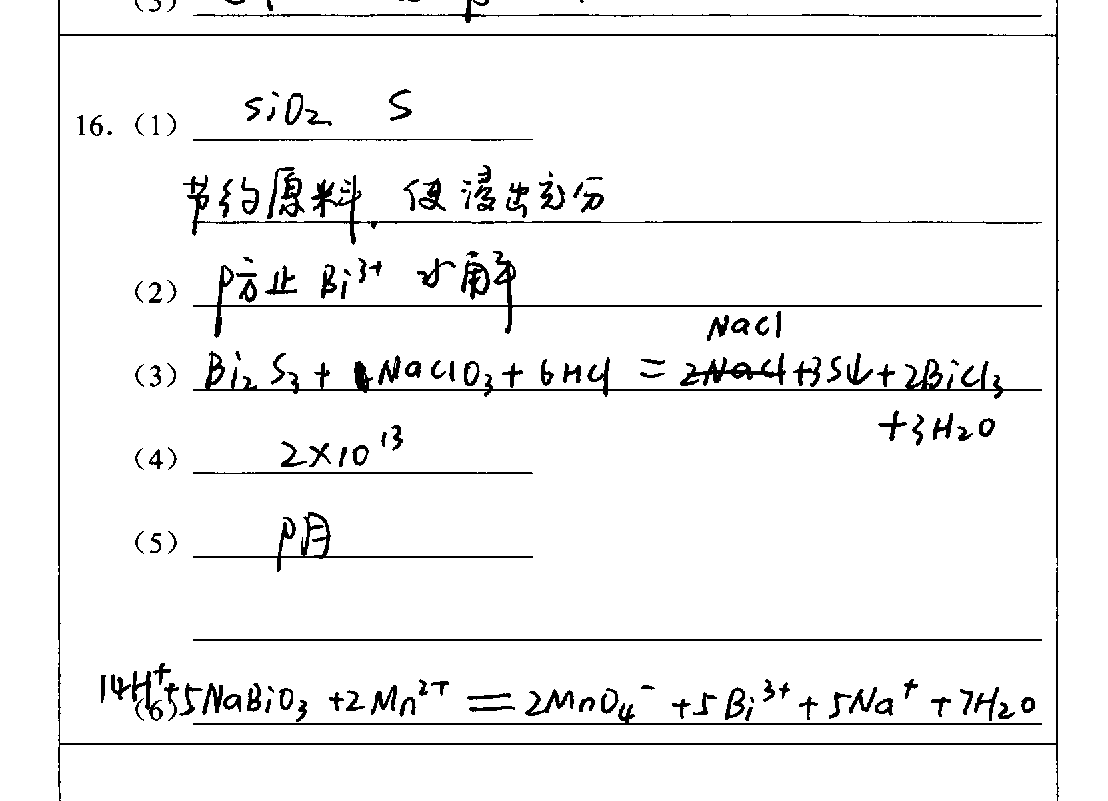 (3)
16.（1） SiO₂ S
节约原料，使浸出充分
（2） 防止 Bi³⁺ 水解
NaCl
（3） Bi₂S₃ + NaClO₃ + 6HCl = 2NaCl + 3S↓ + 2BiCl₃
+3H₂O
（4） 2×10¹³
（5） 阴
（6） 14H⁺+5NaBiO₃ +2Mn²⁺ = 2MnO₄⁻ +5Bi³⁺ +5Na⁺ +7H₂O